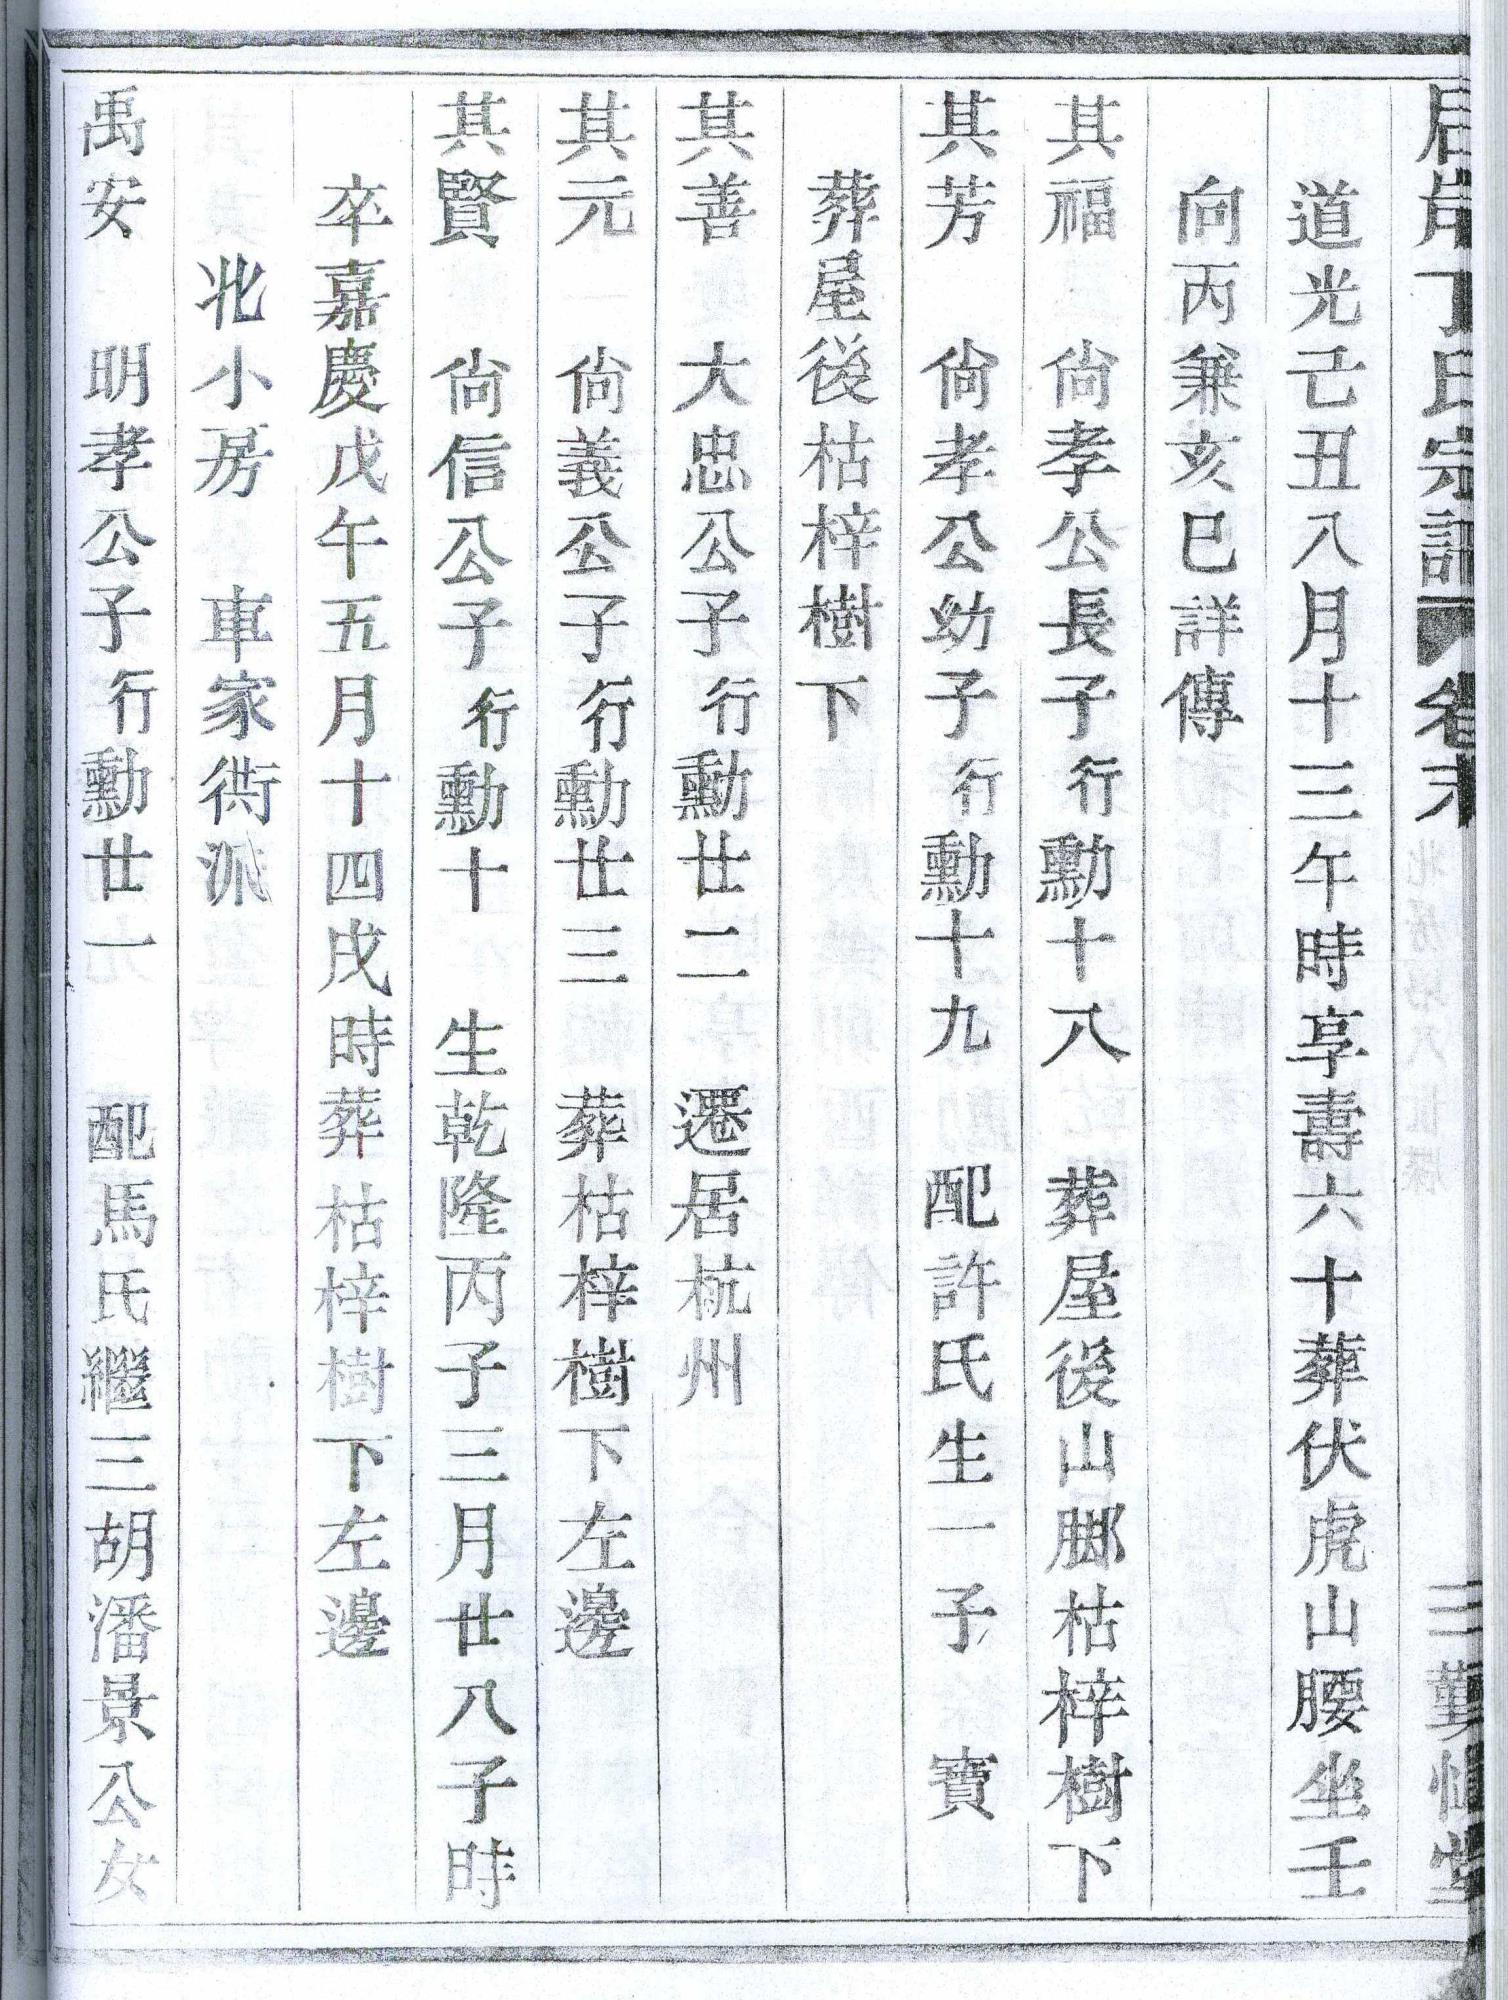 丁氏宗譜 卷末 三 堂
道光己丑八月十三午時享壽六十葬伏虎山腰坐壬
向丙兼亥巳詳傳
其福 尙孝公長子行勳十八 葬屋後山脚枯梓樹下
其芳 尙孝公幼子行勳十九 配許氏生一子 寶
葬屋後枯梓樹下
其善 大忠公子行勳廿二 遷居杭州
其元 尙義公子行勳廿三 葬枯梓樹下左邊
其賢 尙信公子行勳十 生乾隆丙子三月廿八子時
卒嘉慶戊午五月十四戌時葬枯梓樹下左邊
北小房 車家衖派
禹安 明孝公子行勳廿一 配馬氏繼三胡潘景公女